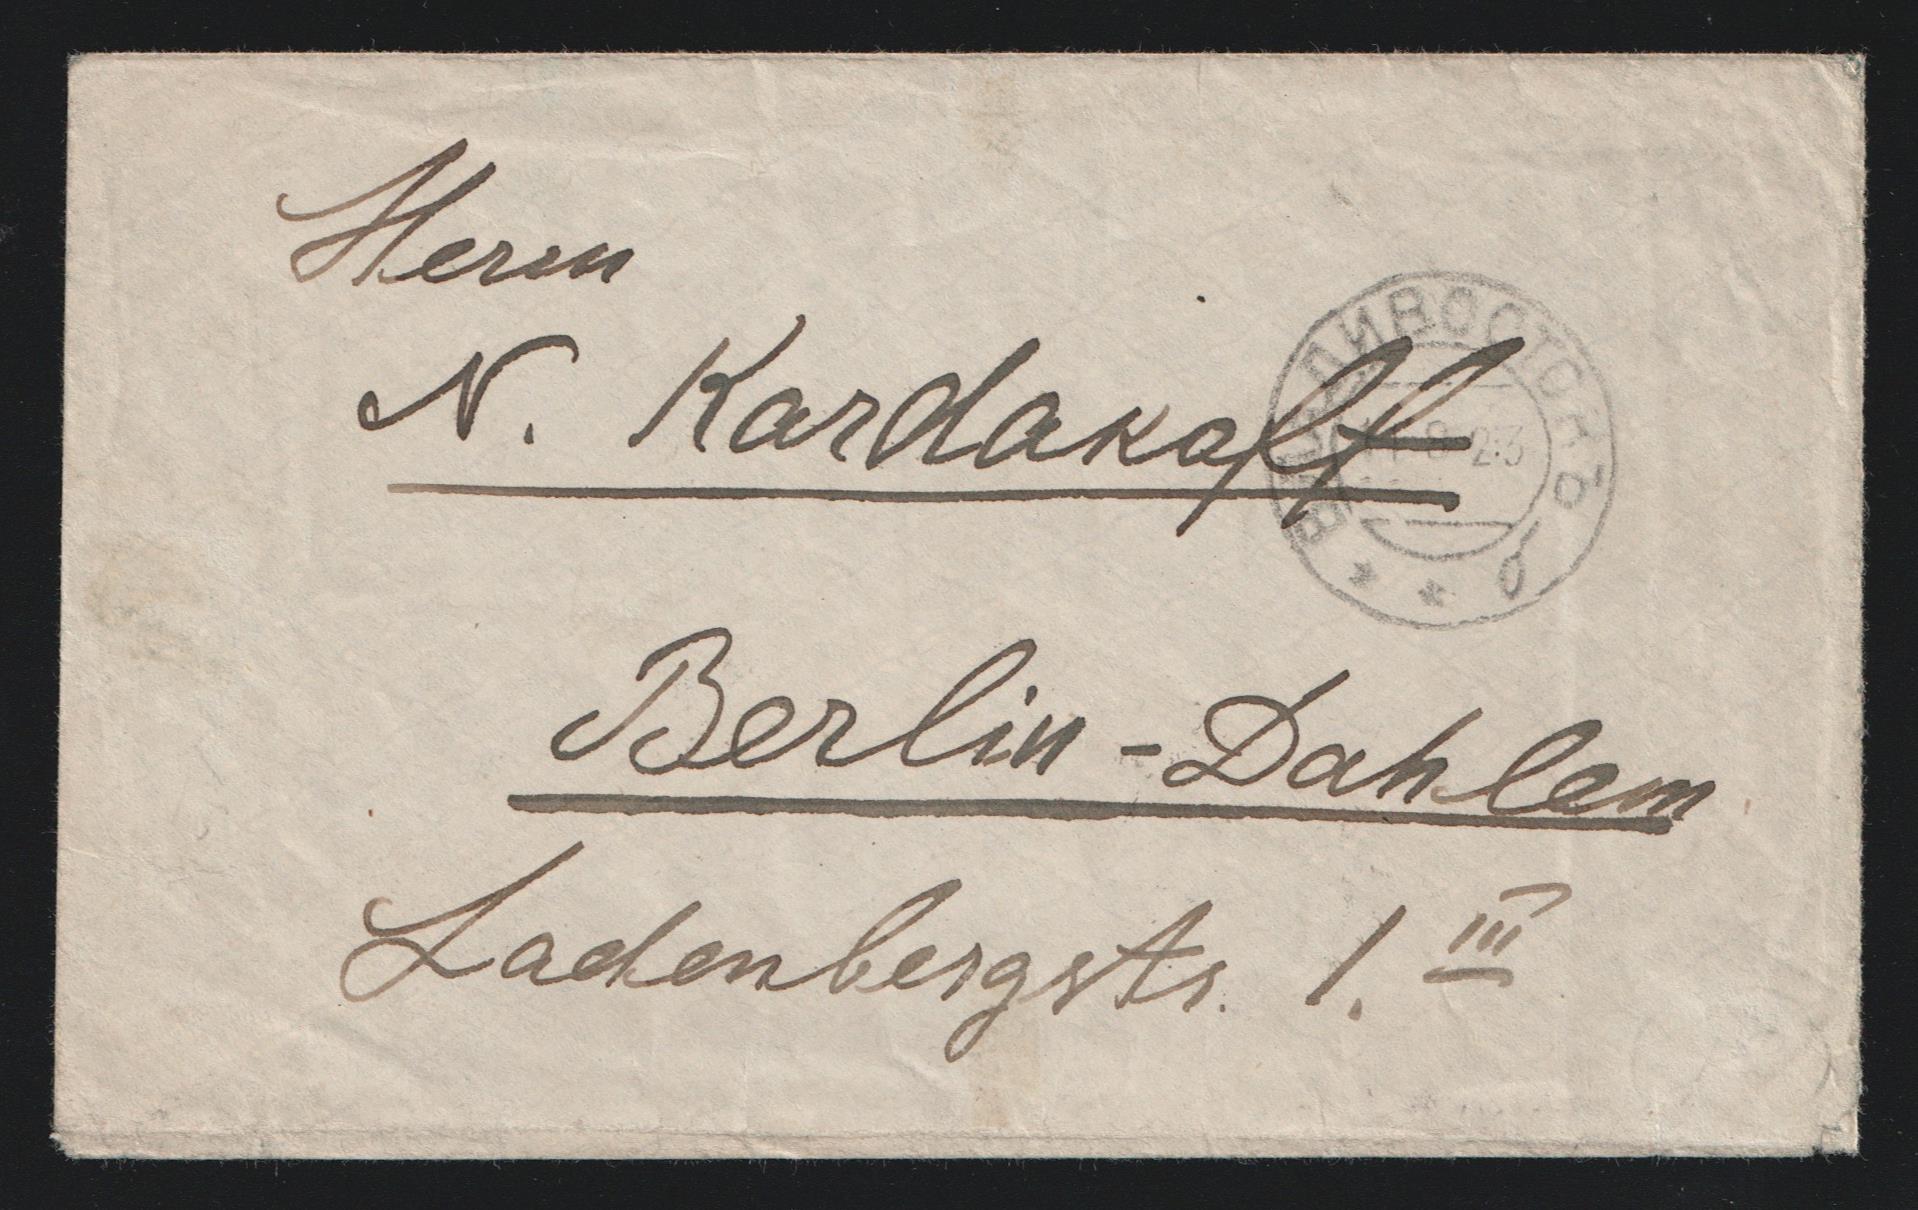 Herrn
N. Kardakoff
ВЛАДИВОСТОКЪ
8 23
б
Berlin-Dahlem
Ladenbergstr. 1. III